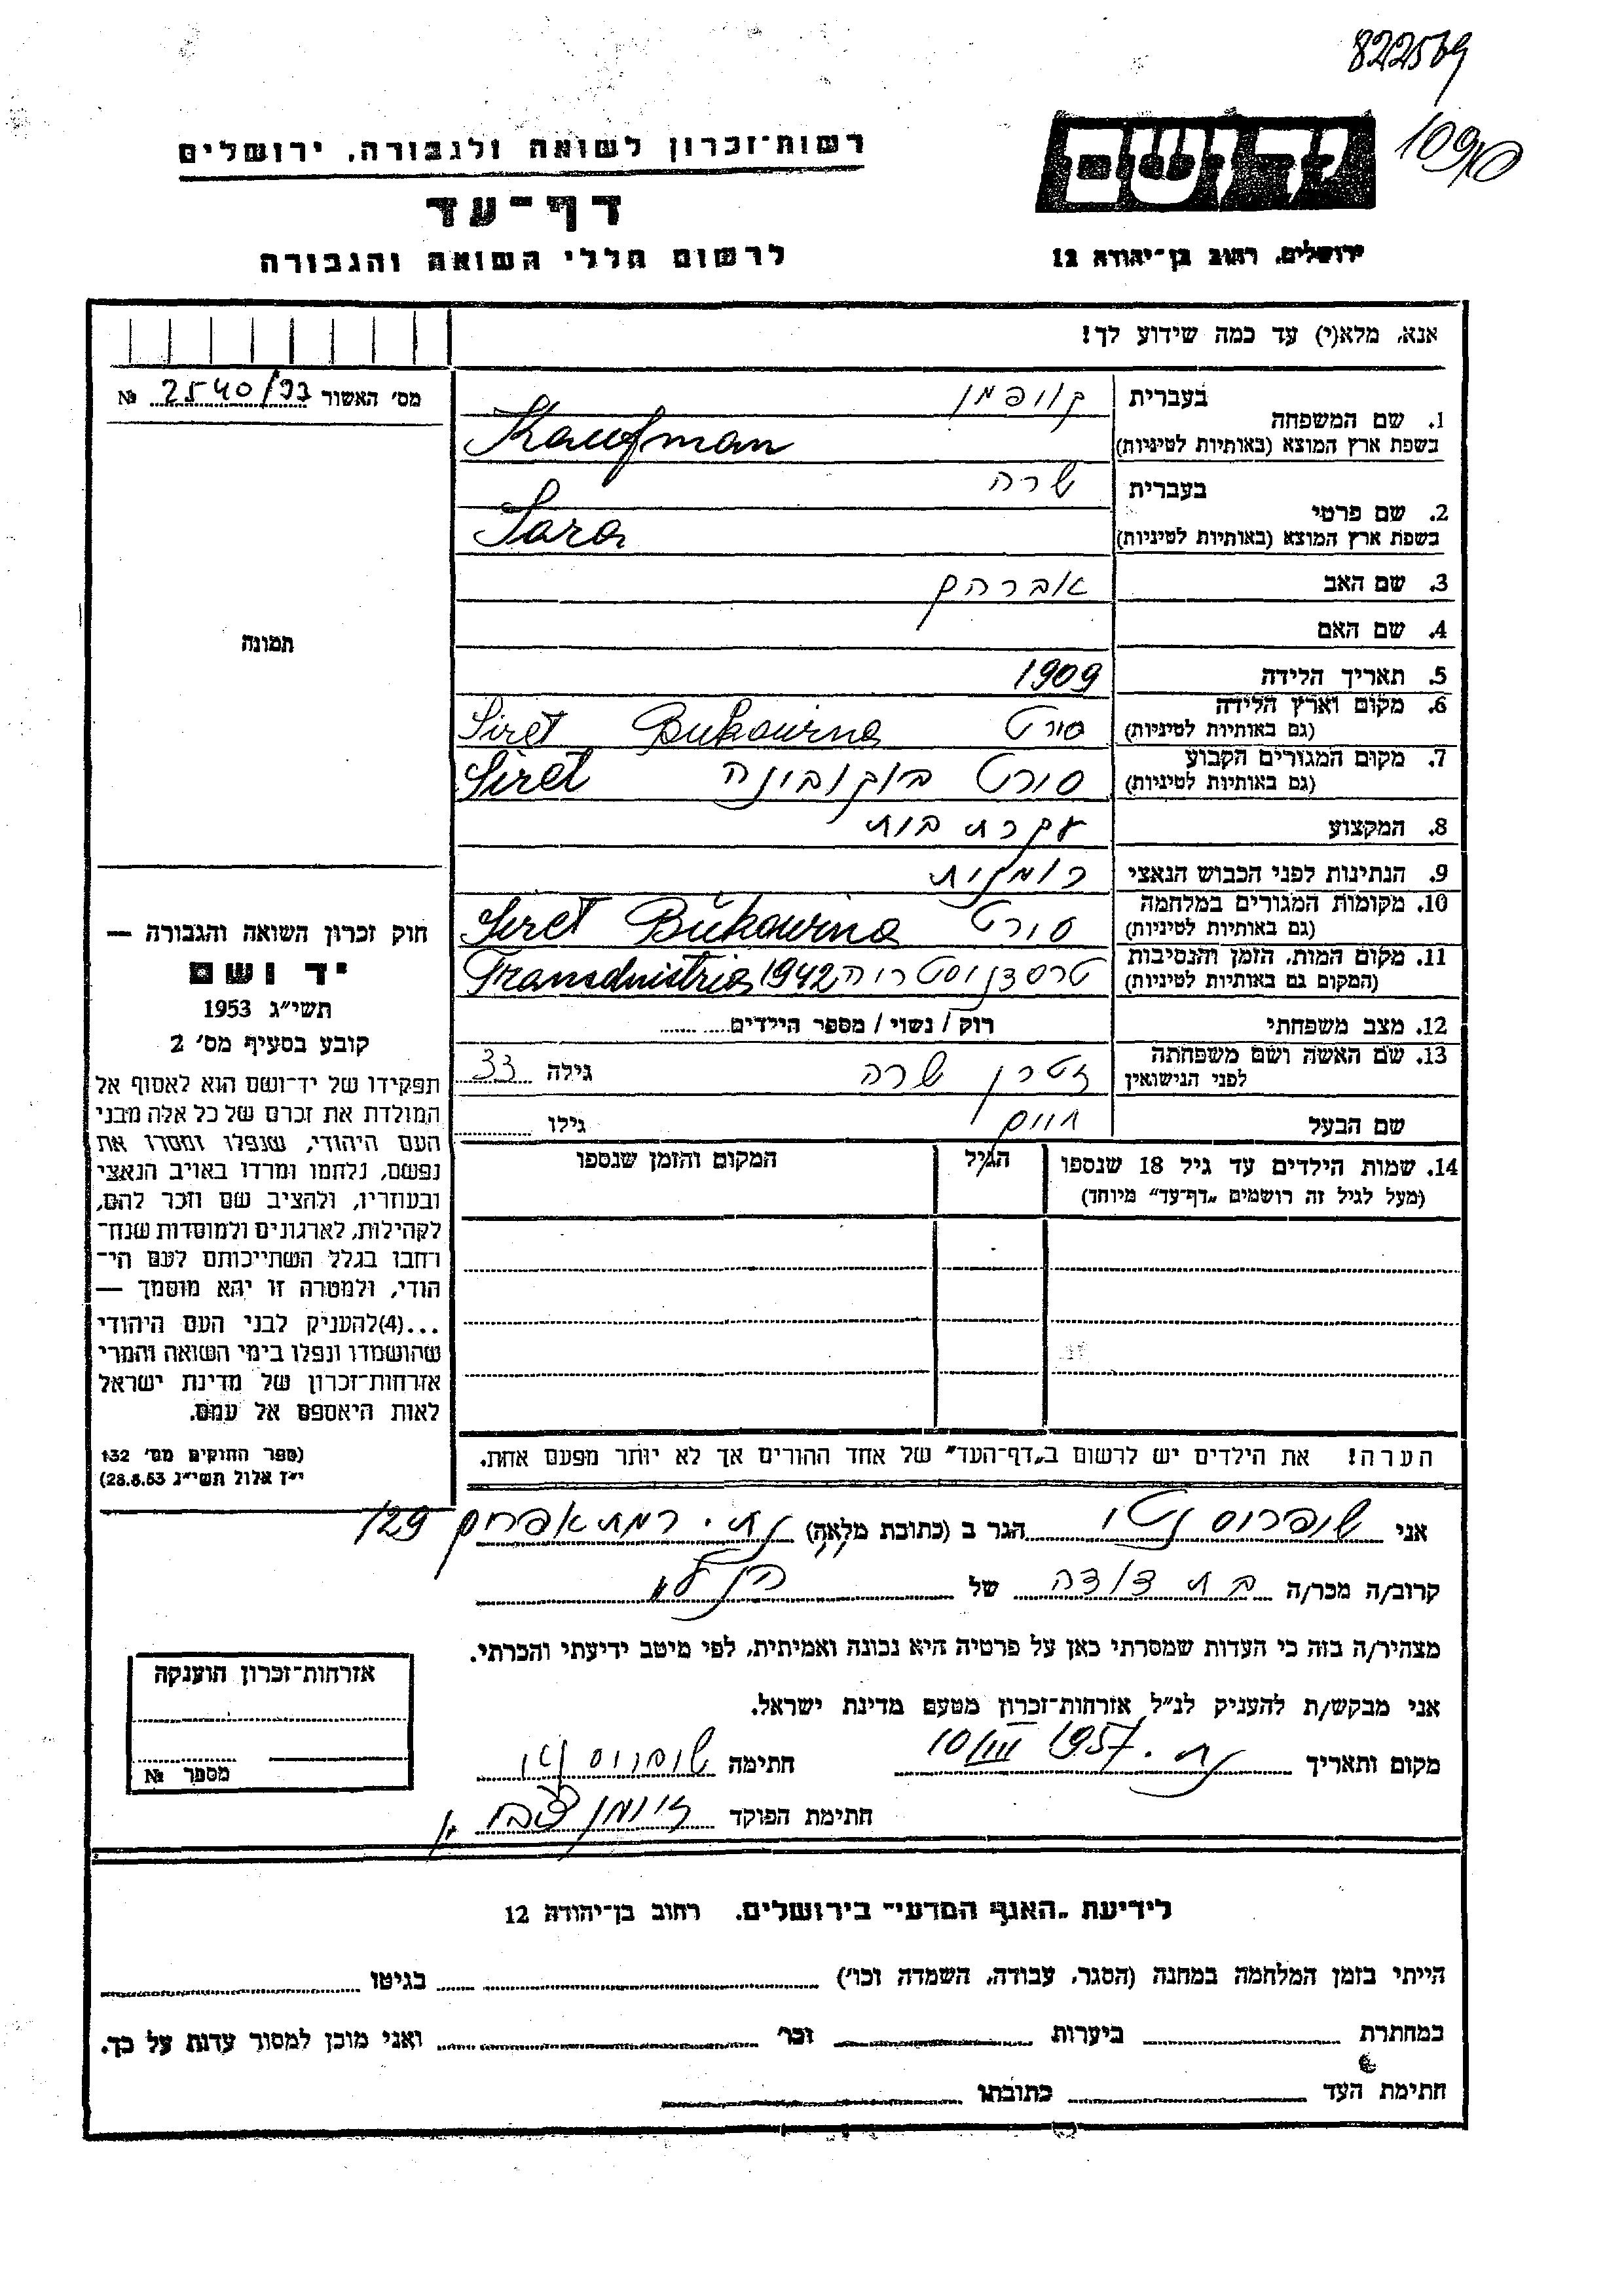 822569
יד ושם
רשות־זכרון לשואה ולגבורה, ירושלים
דף־עד
לרשום חללי השואה והגבורה
ירושלים, רחוב בן־יהודה 12
אנא, מלא(י) עד כמה שידוע לך!
מס׳ האשור 2540/33 №
בעברית קויפמן
1. שם המשפחה
בשפת ארץ המוצא (באותיות לטיניות) Kaufman
בעברית שרה
2. שם פרטי
בשפת ארץ המוצא (באותיות לטיניות) Sara
3. שם האב אברהם
4. שם האם
תמונה
5. תאריך הלידה 1909
6. מקום וארץ הלידה
(גם באותיות לטיניות) סירט Bukowina Siret
7. מקום המגורים הקבוע
(גם באותיות לטיניות) סירט בוקובינה Siret
8. המקצוע עקרת בית
9. הנתינות לפני הכבוש הנאצי רומנית
10. מקומות המגורים במלחמה
(גם באותיות לטיניות) סירט Bukowina Siret
11. מקום המות, הזמן והנסיבות
(המקום גם באותיות לטיניות) טרסדניסטריה 1942 Transdnistria
12. מצב משפחתי רוק / נשוי / מספר הילדים
13. שם האשה ושם משפחתה
לפני הנישואין שרה גילה 33
שם הבעל חיים גילו
14. שמות הילדים עד גיל 18 שנספו הגיל המקום והזמן שנספו
(מעל לגיל זה רושמים „דף־עד״ מיוחד)
הערה! את הילדים יש לרשום ב„דף־העד״ של אחד ההורים אך לא יותר מפעם אחת.
חוק זכרון השואה והגבורה —
יד ושם
תשי״ג 1953
קובע בסעיף מס׳ 2
תפקידו של יד־ושם הוא לאסוף אל
המולדת את זכרם של כל אלה מבני
העם היהודי, שנפלו ומסרו את
נפשם, נלחמו ומרדו באויב הנאצי
ובעוזריו, ולהציב שם וזכר להם,
לקהילות, לארגונים ולמוסדות שנח־
רחבו בגלל השתייכותם לעם הי־
הודי, ולמטרה זו יהא מוסמך —
...(4)להעניק לבני העם היהודי
שהושמדו ונפלו בימי השואה והמרי
אזרחות־זכרון של מדינת ישראל
לאות היאספם אל עמם.
(ספר החוקים מס׳ 132
י״ז אלול תשי״ג 28.8.53)
אני שופרוס נטי הגר ב (כתובת מלאה) נת. רמת אפרים 129
קרוב/ה מכר/ה בת דודה של הנ״ל
מצהיר/ה בזה כי העדות שמסרתי כאן על פרטיה היא נכונה ואמיתית, לפי מיטב ידיעתי והכרתי.
אני מבקש/ת להעניק לנ״ל אזרחות־זכרון מטעם מדינת ישראל.
מקום ותאריך נת. 10/III 1957 חתימה שופרוס נטי
חתימת הפוקד
אזרחות־זכרון הוענקה
מספר №
לידיעת „האגף המדעי״ בירושלים, רחוב בן־יהודה 12
הייתי בזמן המלחמה במחנה (הסגר, עבודה, השמדה וכו׳) בגיטו
במחתרת ביערות וכר׳ ואני מוכן למסור עדות על כך.
חתימת העד כתובתו